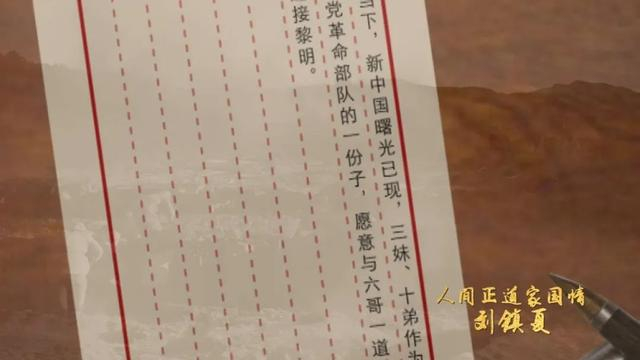 当下，新中国曙光已现，三妹、十弟作为
党革命部队的一份子，愿意与六哥一道
接黎明。
人间正道家国情
刘镇夏